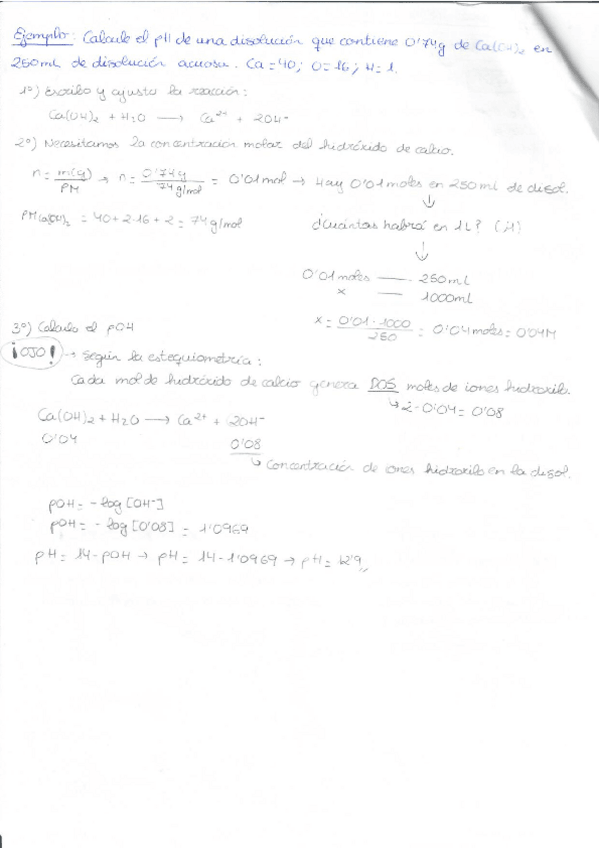 Ejemplo: Calcule el pH de una disolución que contiene 0'74g de Ca(OH)₂ en
250mL de disolución acuosa. Ca=40; O=16; H=1.
1º) Escribo y ajusto la reacción:
Ca(OH)₂ + H₂O → Ca²⁺ + 2OH⁻
2º) Necesitamos la concentración molar del hidróxido de calcio.
n = m(g)/PM → n = 0'74g/74g/mol = 0'01mol → Hay 0'01moles en 250ml de disol.
↓
PM Ca(OH)₂ = 40+2·16+2 = 74g/mol
¿Cuántas habrá en 1L? (M)
↓
0'01moles — 250mL
x — 1000mL
x = 0'01·1000/250 = 0'04moles = 0'04M
3º) Calculo el pOH
¡OJO! → Según la estequiometría:
Cada mol de hidróxido de calcio genera DOS moles de iones hidroxilo.
↳ 2·0'04 = 0'08
Ca(OH)₂ + H₂O → Ca²⁺ + 2OH⁻
0'04 0'08
↳ Concentración de iones hidroxilo en la disol.
pOH = -log[OH⁻]
pOH = -log[0'08] = 1'0969
pH = 14-pOH → pH = 14-1'0969 → pH = 12'9